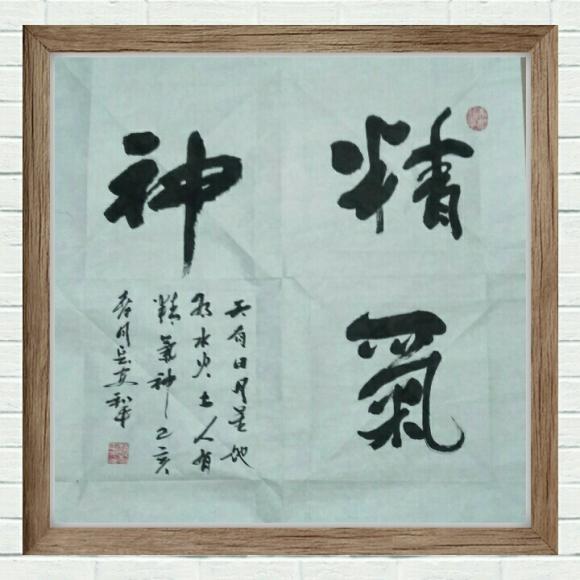 精氣
神
天有日月星地
有水火土人有
精氣神己亥
春月